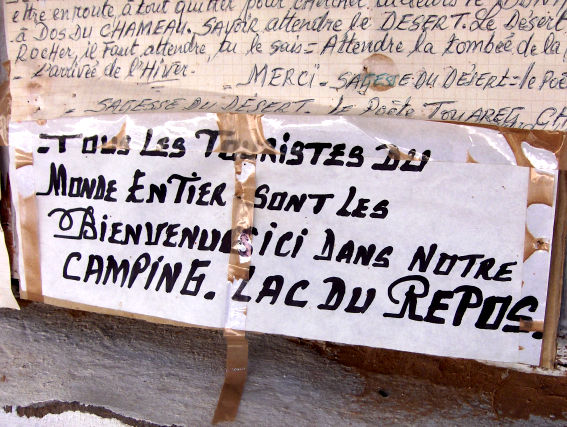 être en route à tout quitter pour chercher
à DOS DU CHAMEAU. SAVOIR attendre le DÉSERT. Le Désert,
ROCHER, il faut attendre, tu le sais = Attendre la tombée de la
L'arrivée de l'HIVER. MERCI - SAGESSE DU DÉSERT = le Poè
- SAGESSE DU DÉSERT. Le Poète TOUAREG, CH
=TOUS LES TOURISTES DU
MONDE ENTIER SONT LES
BIENVENUS ICI DANS NOTRE
CAMPING. LAC DU REPOS.